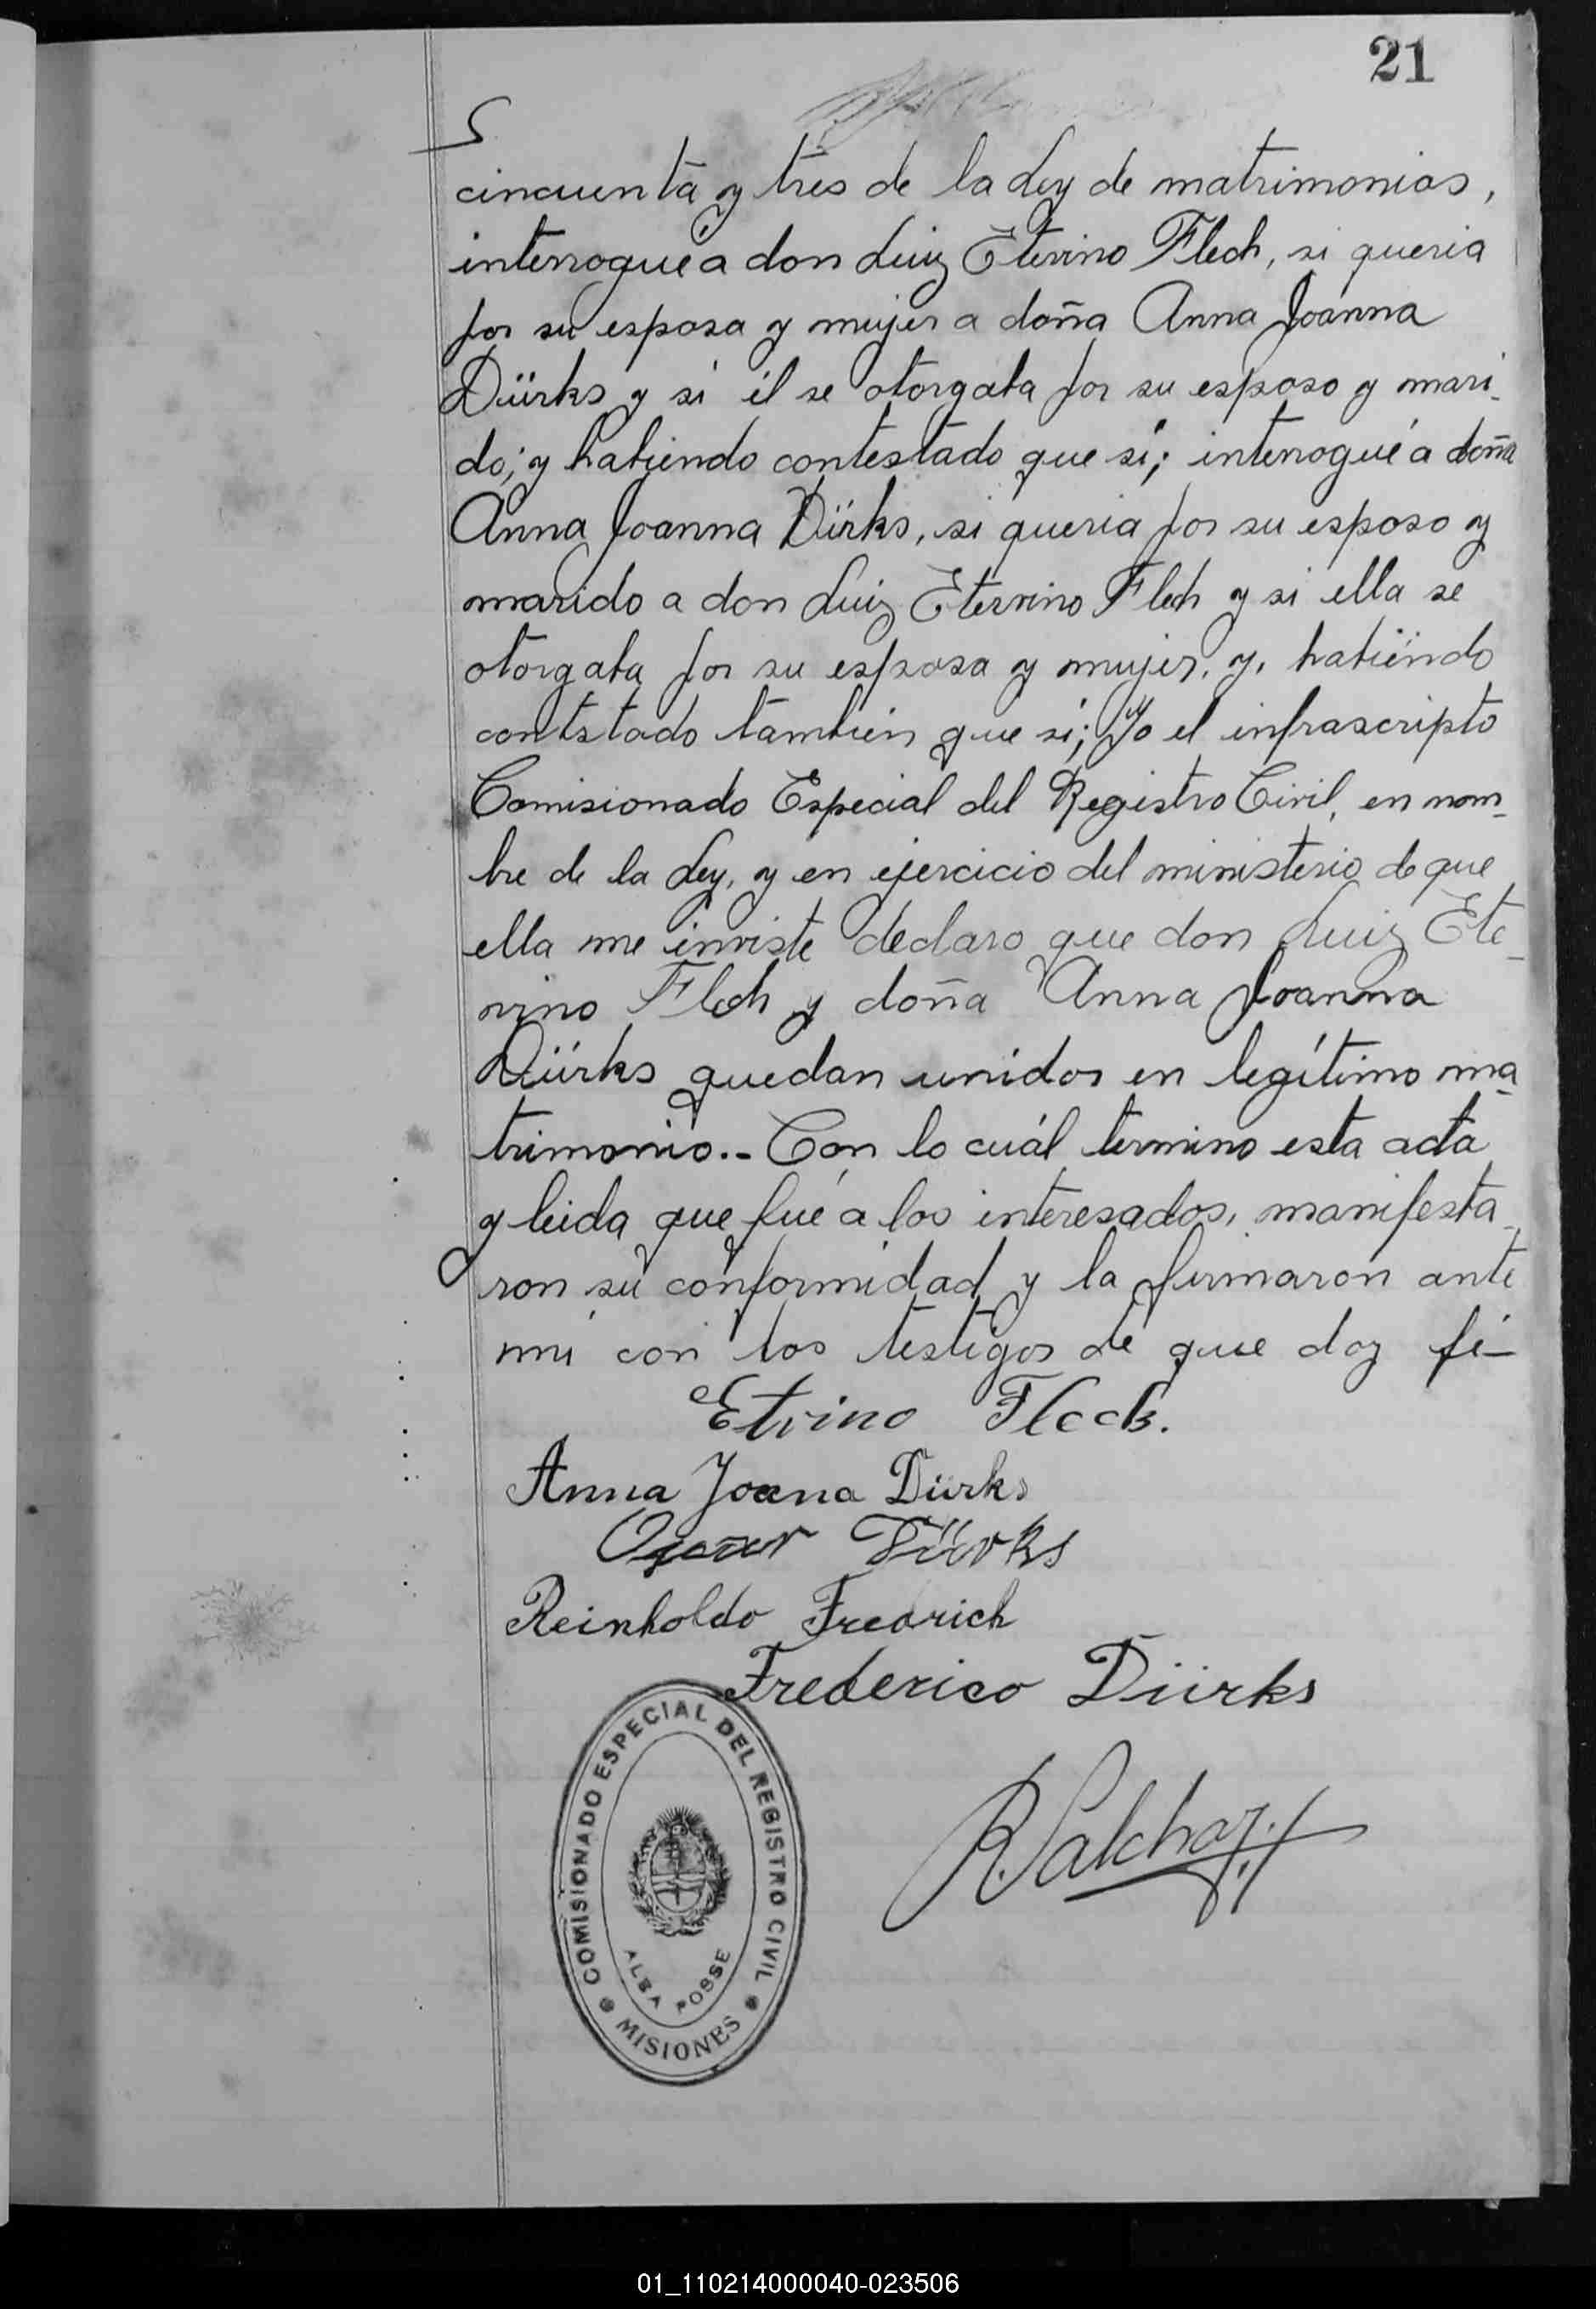 21
cincuenta y tres de la Ley de matrimonios,
interrogué a don Luiz Etevino Flech, si queria
por su esposa y mujer a doña Anna Joanna
Düirks y si él se otorgaba por su esposo y mari-
do; y habiendo contestado que si; interrogué a doña
Anna Joanna Dürks, si queria por su esposo y
marido a don Luiz Etevino Flech y si ella se
otorgaba por su esposa y mujer, y, habiendo
contstado tambien que si; Yo el infrascripto
Comisionado Especial del Registro Civil, en nom-
bre de la Ley, y en ejercicio del ministerio de que
ella me inviste declaro que don Luiz Ete-
vino Flech y doña Anna Joanna
Düirks quedan unidos en legítimo ma-
trimonio.- Con lo cuál termino esta acta
y leida que fué a los interesados, manifesta-
ron su conformidad y la firmaron ante
mi con los testigos de que doy fé-
Etvino Fleck.
Anna Joana Dürks
Dürks
Reinholdo Fredrich
Frederico Dürks
COMISIONADO ESPECIAL DEL REGISTRO CIVIL
ALBA POSSE
MISIONES
01_110214000040-023506